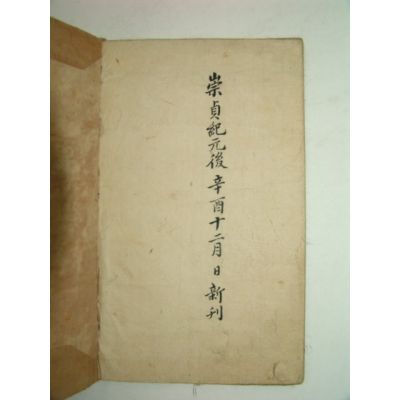 崇貞紀元後辛酉十二月 日 新刊